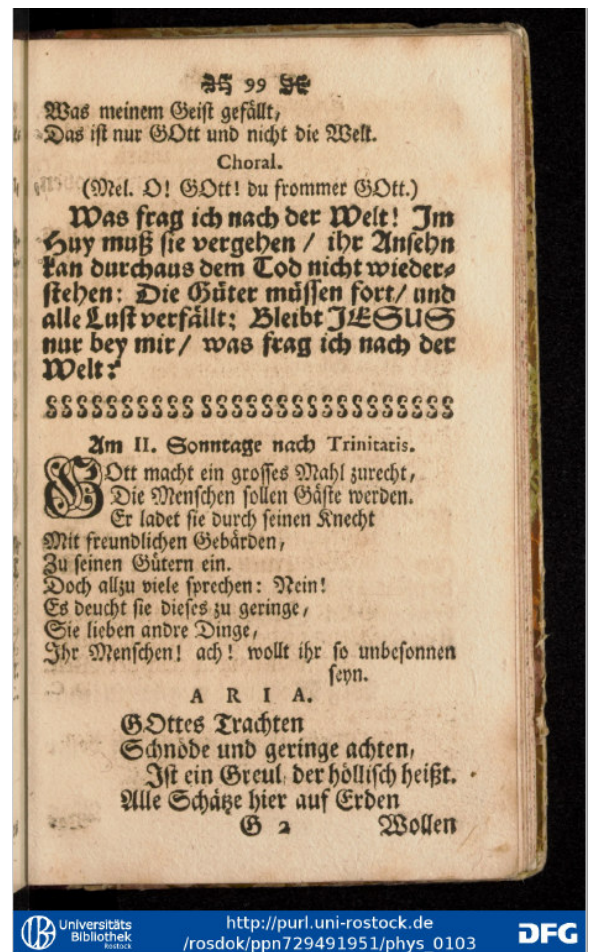 99
Was meinem Geist gefällt,
Das ist nur GOtt und nicht die Welt.
Choral.
(Mel. O! GOtt! du frommer GOtt.)
Was frag ich nach der Welt! Im
Huy muß sie vergehen / ihr Ansehn
kan durchaus dem Tod nicht wieder-
stehen: Die Güter müssen fort/ und
alle Lust verfällt; Bleibt JESUS
nur bey mir / was frag ich nach der
Welt?
Am II. Sonntage nach Trinitatis.
GOtt macht ein grosses Mahl zurecht,
Die Menschen sollen Gäste werden.
Er ladet sie durch seinen Knecht
Mit freundlichen Gebärden,
Zu seinen Gütern ein.
Doch allzu viele sprechen: Nein!
Es deucht sie dieses zu geringe,
Sie lieben andre Dinge,
Ihr Menschen! ach! wollt ihr so unbesonnen
seyn.
ARIA.
GOttes Trachten
Schnöde und geringe achten,
Ist ein Greul, der höllisch heißt.
Alle Schätze hier auf Erden
G 2 Wollen
Universitäts
Bibliothek
Rostock
http://purl.uni-rostock.de
/rosdok/ppn729491951/phys_0103
DFG